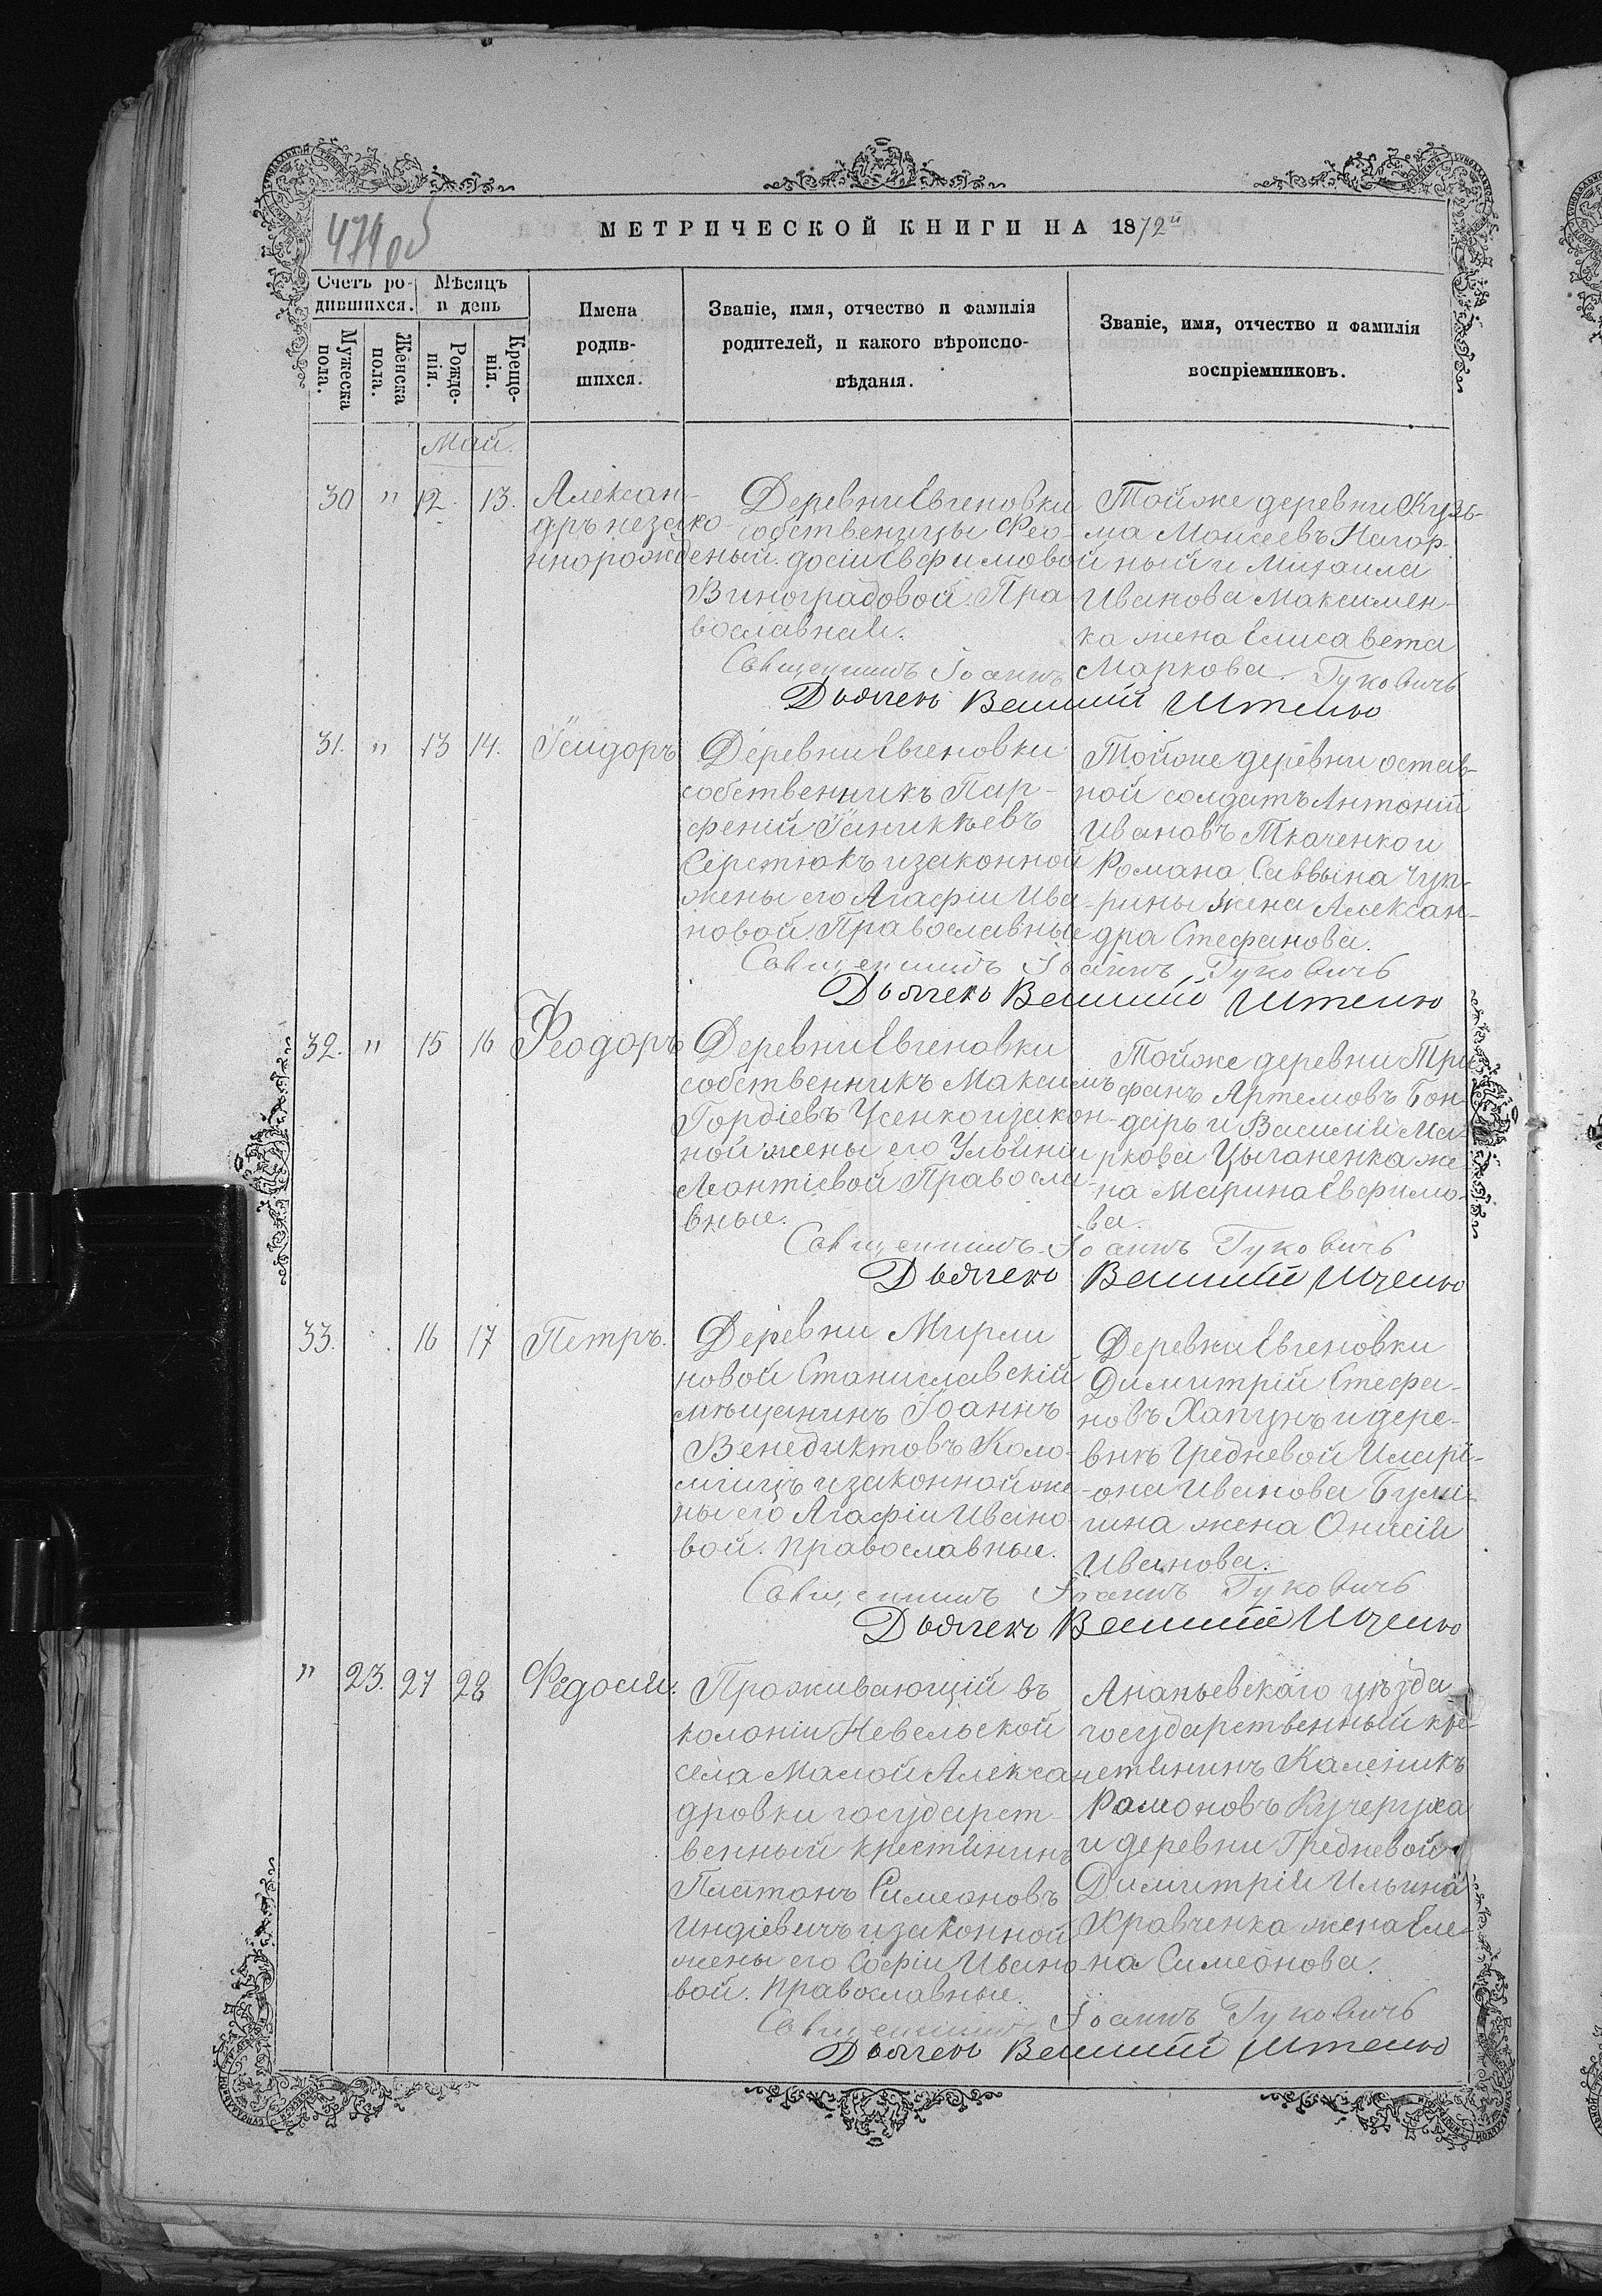 474 об
МЕТРИЧЕСКОЙ КНИГИ НА 1872й
Счетъ ро-
дившихся.
Мѣсяцъ
и день
Мужеска
пола.
Женска
пола.
Рожде-
нія.
Креще-
нія.
Имена
родив-
шихся.
Званіе, имя, отчество и фамилія
родителей, и какого вѣроиспо-
вѣданія.
Званіе, имя, отчество и фамилія
воспріемниковъ.
Май.
30 " 12. 13.
Алексан-
дръ незако-
ннорожденый.
Деревни Евгеновки
собственницы Фео-
досіи Евфимовой
Виноградовой. Пра-
вославная.
Тойже деревни Кузь-
ма Моисеевъ Нагор-
ный и Михаила
Иванова Максимен-
ка жена Елисавета
Маркова.
Священникъ Іоаннъ Гуковичъ
Дьячекъ Василий
31. " 13 14.
Ісидоръ
Деревни Евгеновки
собственникъ Пар-
феній Іаникіевъ
Сѣрстюкъ и законной
жены его Агафіи Ива-
новой. Православные
Тойже деревни остав-
ной солдатъ Антоній
Ивановъ Ткаченко и
Романа Саввына Чуп-
рины жена Алексан-
дра Стефанова.
Священникъ Іоаннъ Гуковичъ
Дьячекъ Василий
32. " 15 16
Феодоръ
Деревни Евгеновки
собственникъ Максимъ
Гордіевъ Усенко и закон-
ной жены его Ульяніи
Леонтіевой Правосла-
вные.
Тойже деревни Три-
фанъ Артемовъ Бон-
дарь и Василія Ма-
ркова Цыганенка же-
на Марина Евфимо-
ва.
Священникъ Іоаннъ Гуковичъ
Дьячекъ Василий
33. 16 17
Петръ.
Деревни Мирли
новой Станиславскій
мѣщанинъ Іоаннъ
Венедиктовъ Коло-
міицъ и законной же-
ны его Агафіи Ивано-
вой. православные.
Деревни Евгеновки
Димитрій Стефа-
новъ Хапунъ и дере-
внѣ Гредневой Илари-
она Иванова
жена Онисія
Иванова.
Священникъ Іоаннъ Гуковичъ
Дьячекъ Василий
" 23. 27 28
Федосия.
Проживающій въ
колоніи Невельской
села Малой Алекса-
дровки государст-
венный крестянинъ
Платонъ Симеоновъ
Индіевичъ и законной
жены его Софіи Ивано-
вой. православные.
Ананьевскаго уѣзда
государственный кре-
стянинъ Каленикъ
Рамоновъ Кучеруха
и деревни Гредневой
Димитрія Ильина
Кравченка жена Еле-
на Симеонова.
Священникъ Іоаннъ Гуковичъ
Дьячекъ Василий